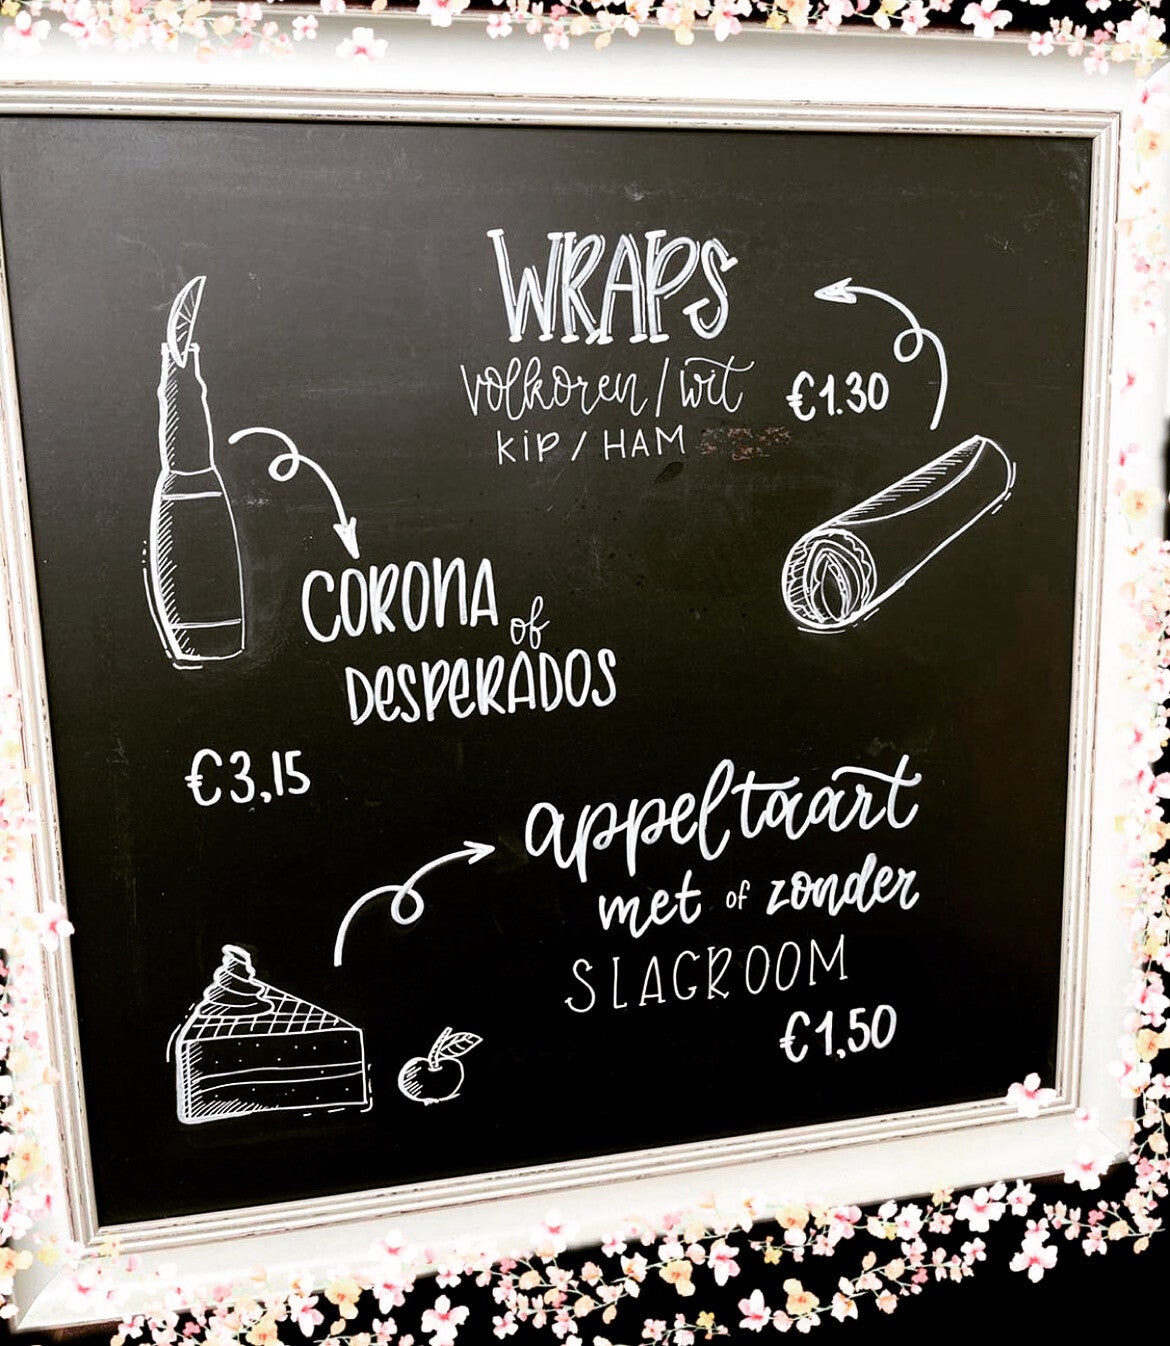 WRAPS
volkoren / wit
€1.30
KIP / HAM
CORONA of
DESPERADOS
€3,15
appeltaart
met of zonder
SLAGROOM
€1,50